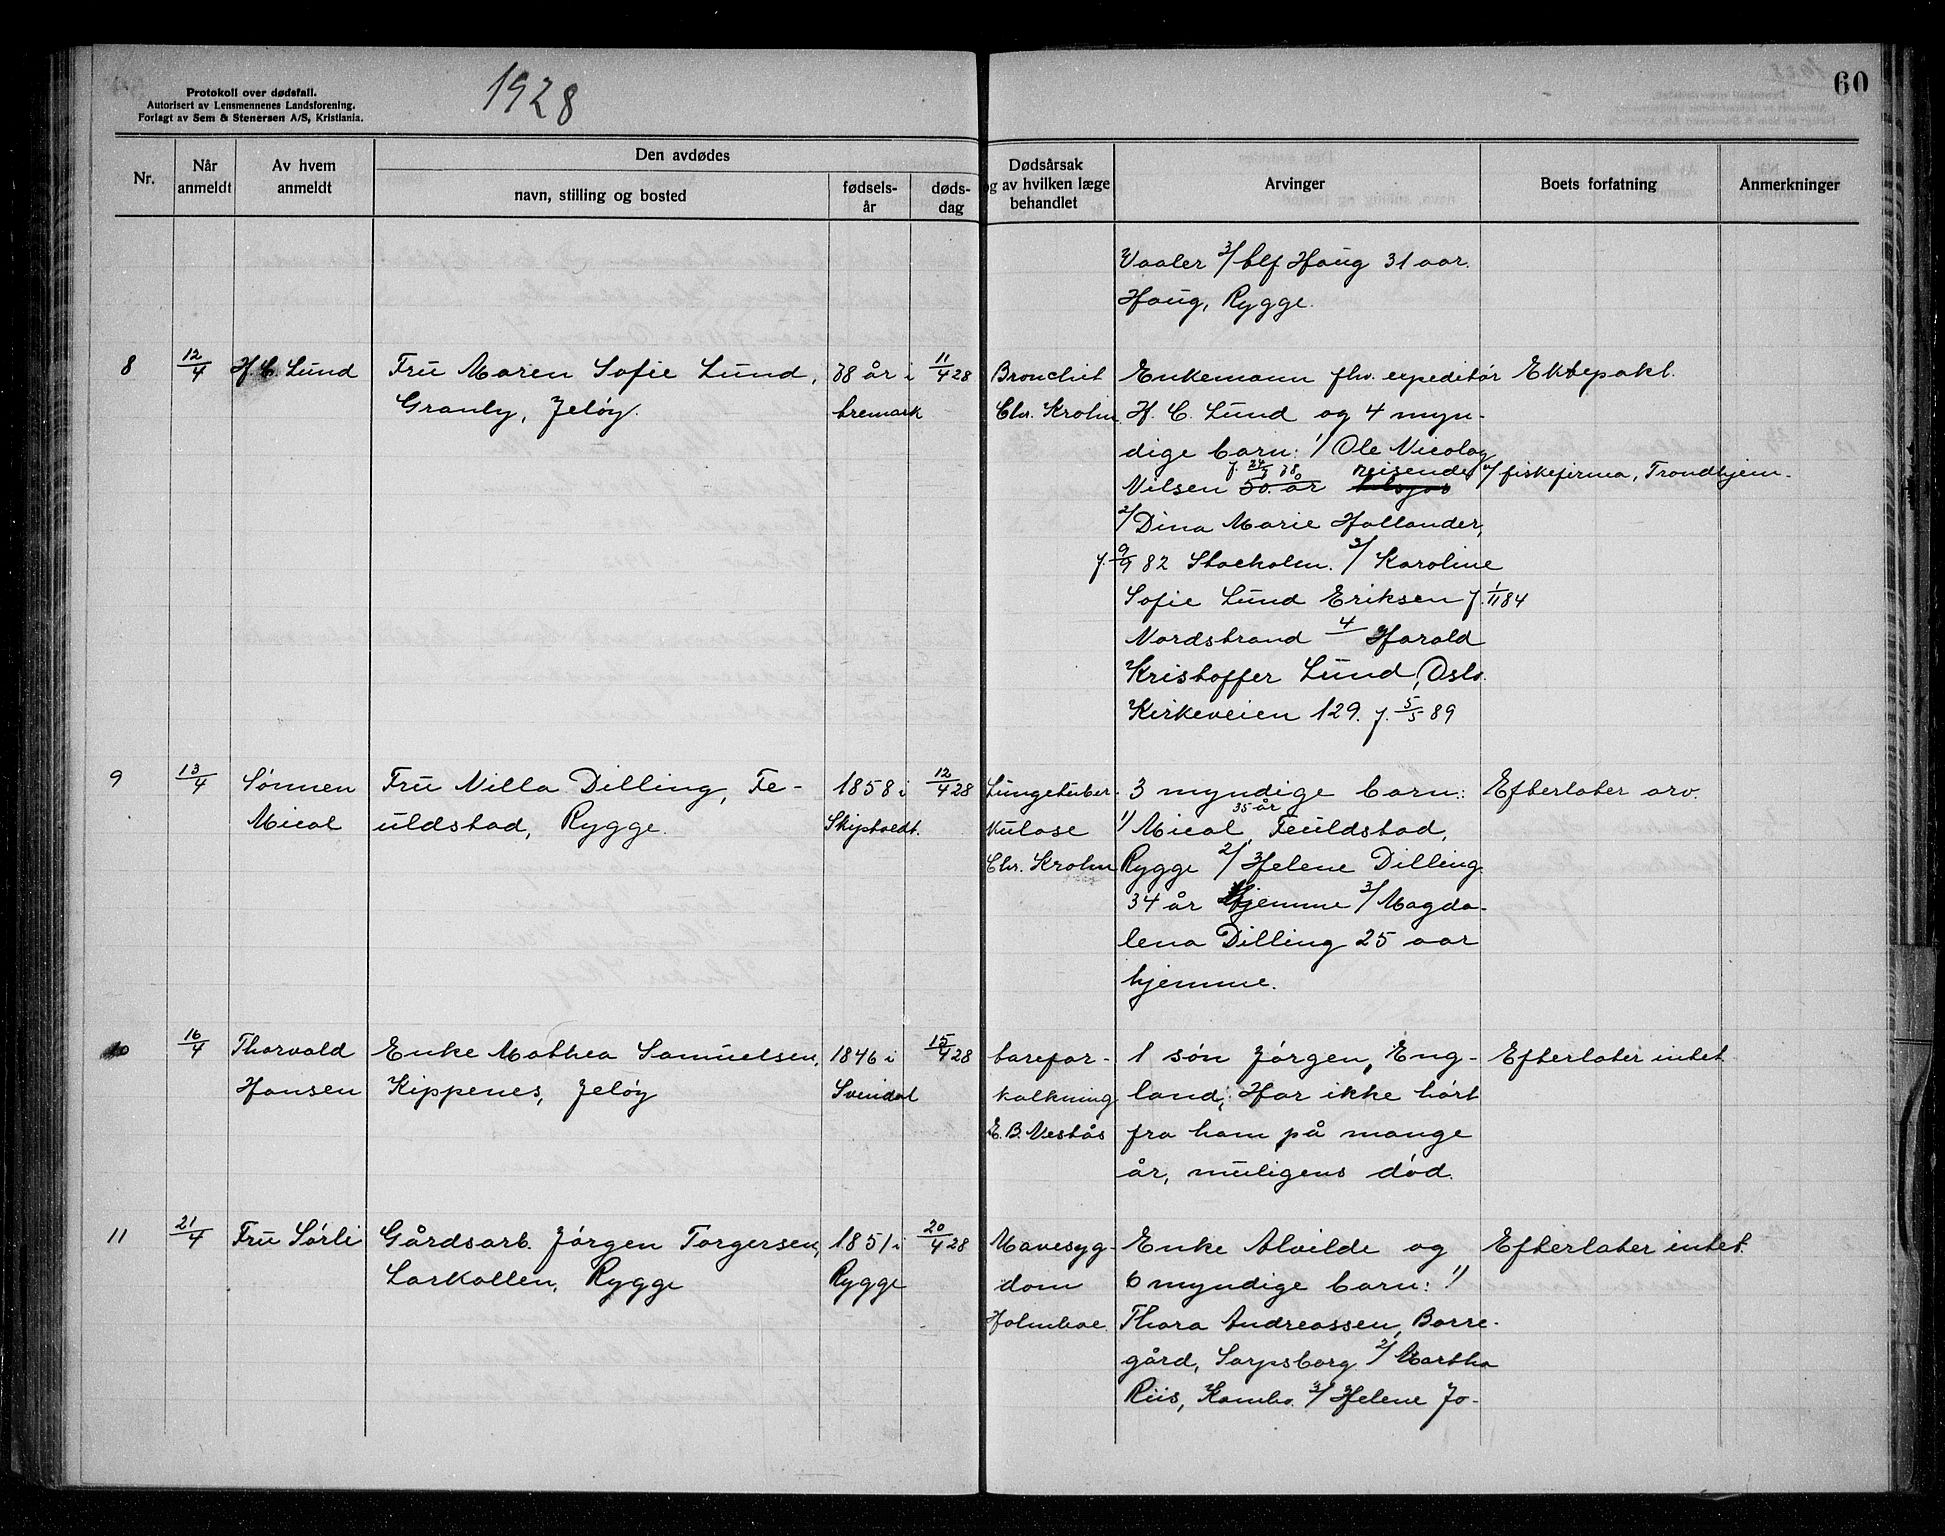 Protokoll over dødsfall.
Autorisert av Lensmennenes Landsforening.
Forlagt av Sem & Stenersen A/S, Kristiania.
1928
60
Nr.
Når anmeldt
Av hvem anmeldt
Den avdødes
navn, stilling og bosted
fødselsår
dødsdag
Dødsårsak og av hvilken læge behandlet
Arvinger
Boets forfatning
Anmerkninger
Vaaler 3/ Elf Haug 31 aar.
Haug, Rygge.
8 12/4 H. C. Lund Fru Maren Sofie Lund, 78 år i 11/4 28 Bronchit Enkemann fhv. expeditør Ektepakt.
Granly, Jeløy. bremark Chr. Krohn H. C. Lund og 4 myn-
dige barn: 1/ Ole Nicolay
f. 24/7 78 reisende v/ fiskefirma, Trondhjem.
Nilsen 50 år
2/ Dina Marie Hollander,
f. 9/9 82 Stockholm. 3/ Karoline
Sofie Lund Eriksen f. 1/11 84
Nordstrand 4 Harald
Kristoffer Lund, Oslo.
Kirkeveien 129. f. 5/5 89
9 13/4 Sønnen Fru Nilla Dilling, Fe- 1858 i 12/4 28 Lungetuber- 3 myndige barn: Efterlater arv
35 år
Mical uldstad, Rygge. Skiptvedt. kulose 1/ Mical, Feuldstad,
Chr. Krohn Rygge 2/ Helene Dilling
34 år hjemme 3/ Magda-
lena Dilling 25 aar
hjemme.
10 16/4 Thorvald Enke Mathea Samuelsen, 1846 i 15/4 28 barefor- 1 søn Jørgen, Eng- Efterlater intet
Hansen Kippenes, Jeløy Svindal kalkning land; Har ikke hørt
E. B. Vestås fra ham på mange
år, muligens død.
11 21/4 Fru Sørli Gårdsarb. Jørgen Torgersen, 1851 i 20/4 28 Mavesyg- Enke Alvilde og Efterlater intet.
Larkollen, Rygge Rygge dom 6 myndige barn: 1/
Holmboe. Thora Andreassen, Borre-
gård, Sarpsborg 2/ Martha
Riis, Kambo. 3/ Helene Jo-